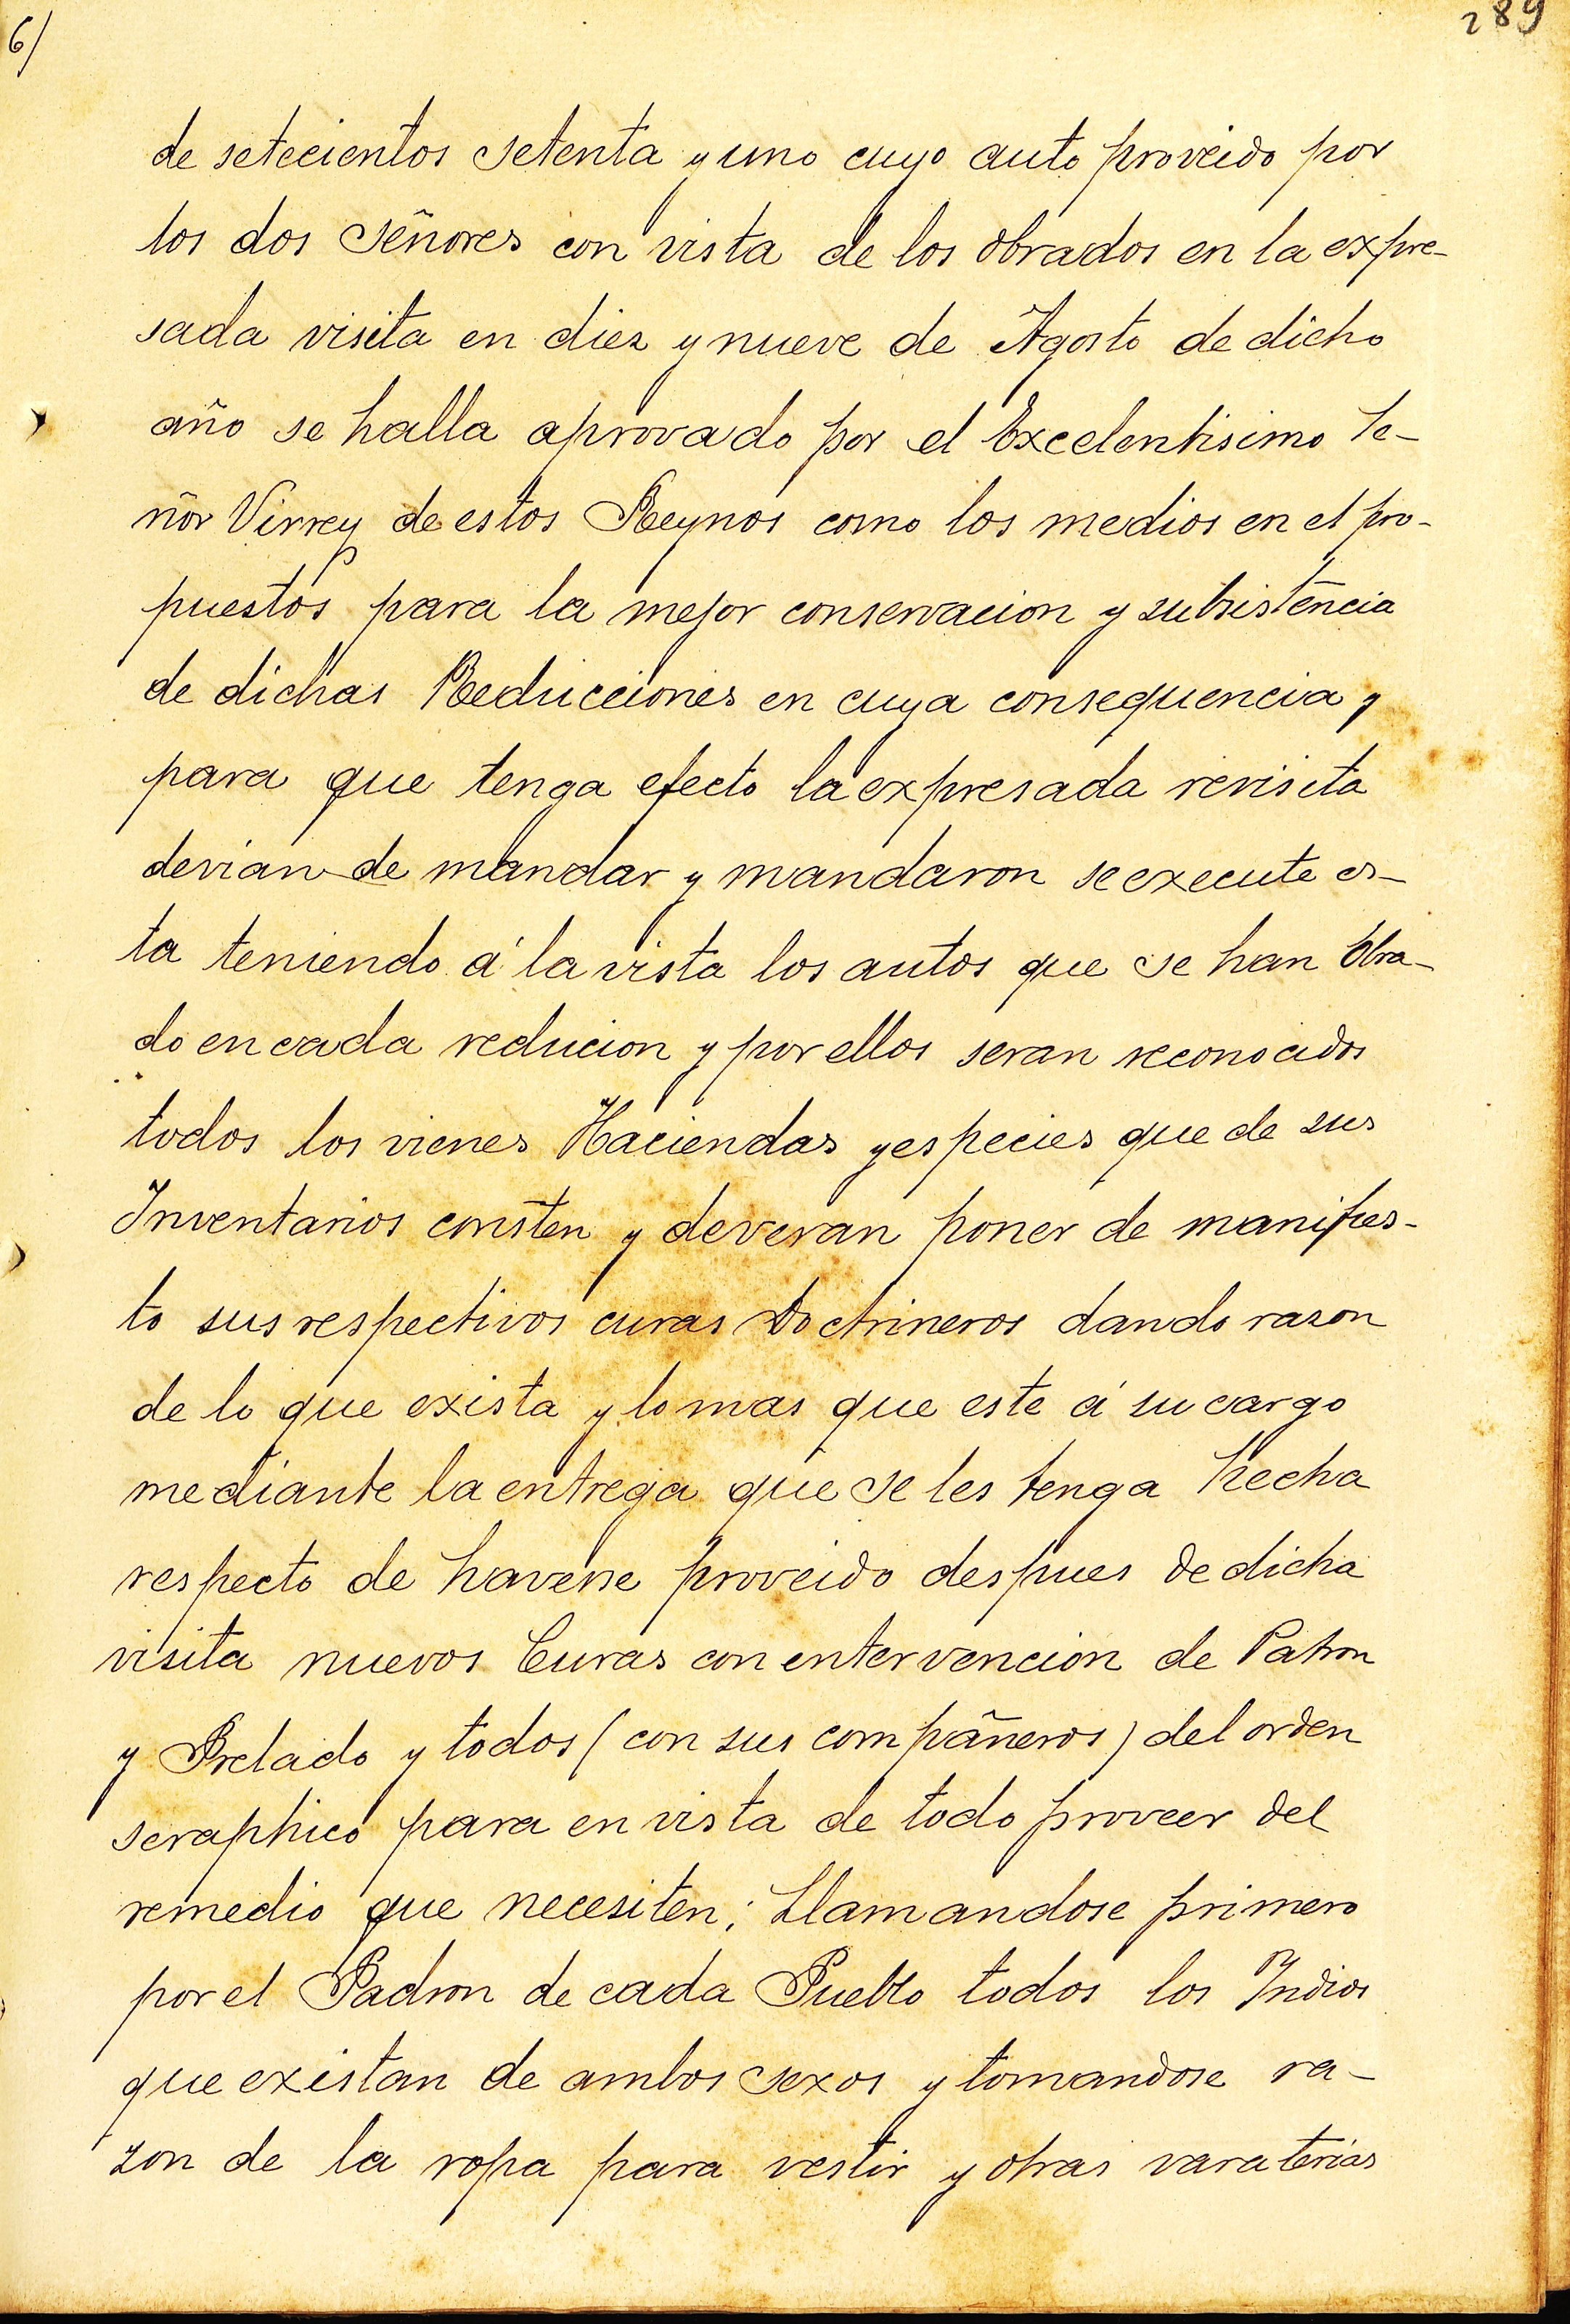 6/
289
de setecientos setenta y uno cuyo auto proveido por
los dos Señores con vista de los obrados en la expre-
sada visita en diez y nueve de Agosto de dicho
año se halla aprovado por el Excelentisimo Se-
ñor Virrey de estos Reynos como los medios en el pro-
puestos para la mejor conservacion y subsistencia
de dichas Reducciones en cuya consequencia y
para que tenga efecto la expresada revisita
devian de mandar y mandaron se execute es-
ta teniendo á la vista los autos que se han obra-
do en cada reducion y por ellos seran reconocidos
todos los vienes Haciendas y especies que de sus
Inventarios consten y deveran poner de manifies-
to sus respectivos curas Doctrineros dando razon
de lo que exista y lo mas que este á su cargo
mediante la entrega que se les tenga hecha
respecto de haverse proveido despues de dicha
visita nuevos Curas con entervencion de Patron
y Prelado y todos (con sus compañeros) del orden
seraphico para en vista de todo proveer del
remedio que necesiten; Llamandose primero
por el Padron de cada Pueblo todos los Indios
que existan de ambos sexos y tomandose ra-
zon de la ropa para vestir y otras varaterias